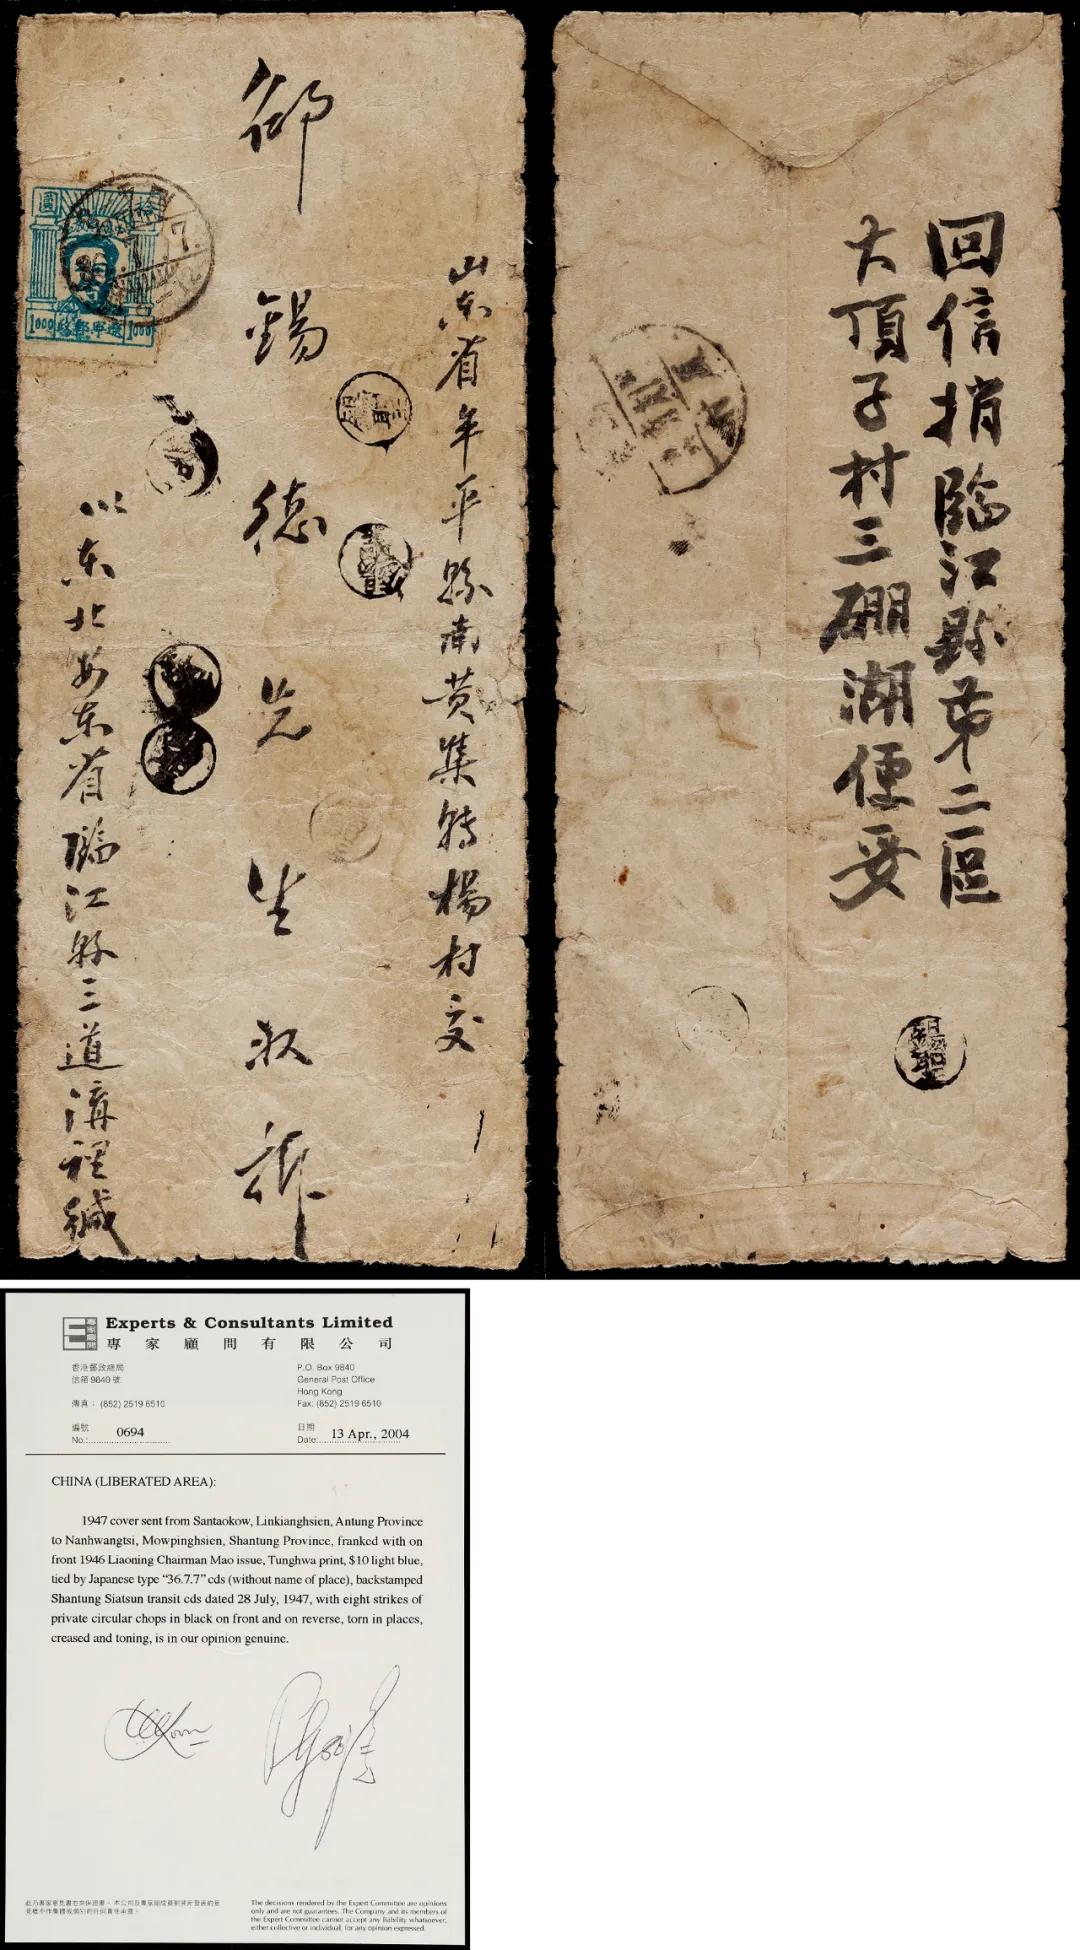 山东省牟平縣南黄集轉楊村交
邰錫德先生收
以东北安东省臨江縣三道溝裡缄
圓拾
1000 遼寧郵政 1000
7.7
回信捎臨江縣第二區
大頂子村三硼湖便妥
Experts & Consultants Limited
專家顧問有限公司
香港郵政總局
信箱 9840 號
傳真：(852) 2519 6510
P.O. Box 9840
General Post Office
Hong Kong
Fax: (852) 2519 6510
編號
No.: 0694
日期
Date: 13 Apr., 2004
CHINA (LIBERATED AREA):
1947 cover sent from Santaokow, Linkianghsien, Antung Province
to Nanhwangtsi, Mowpinghsien, Shantung Province, franked with on
front 1946 Liaoning Chairman Mao issue, Tunghwa print, $10 light blue,
tied by Japanese type “36.7.7” cds (without name of place), backstamped
Shantung Siatsun transit cds dated 28 July, 1947, with eight strikes of
private circular chops in black on front and on reverse, torn in places,
creased and toning, is in our opinion genuine.
The decisions rendered by the Expert Committee are opinions
only and are not guarantees. The Company and its members of
the Expert Committee cannot accept any liability whatsoever,
either collective or individual, for any opinion expressed.